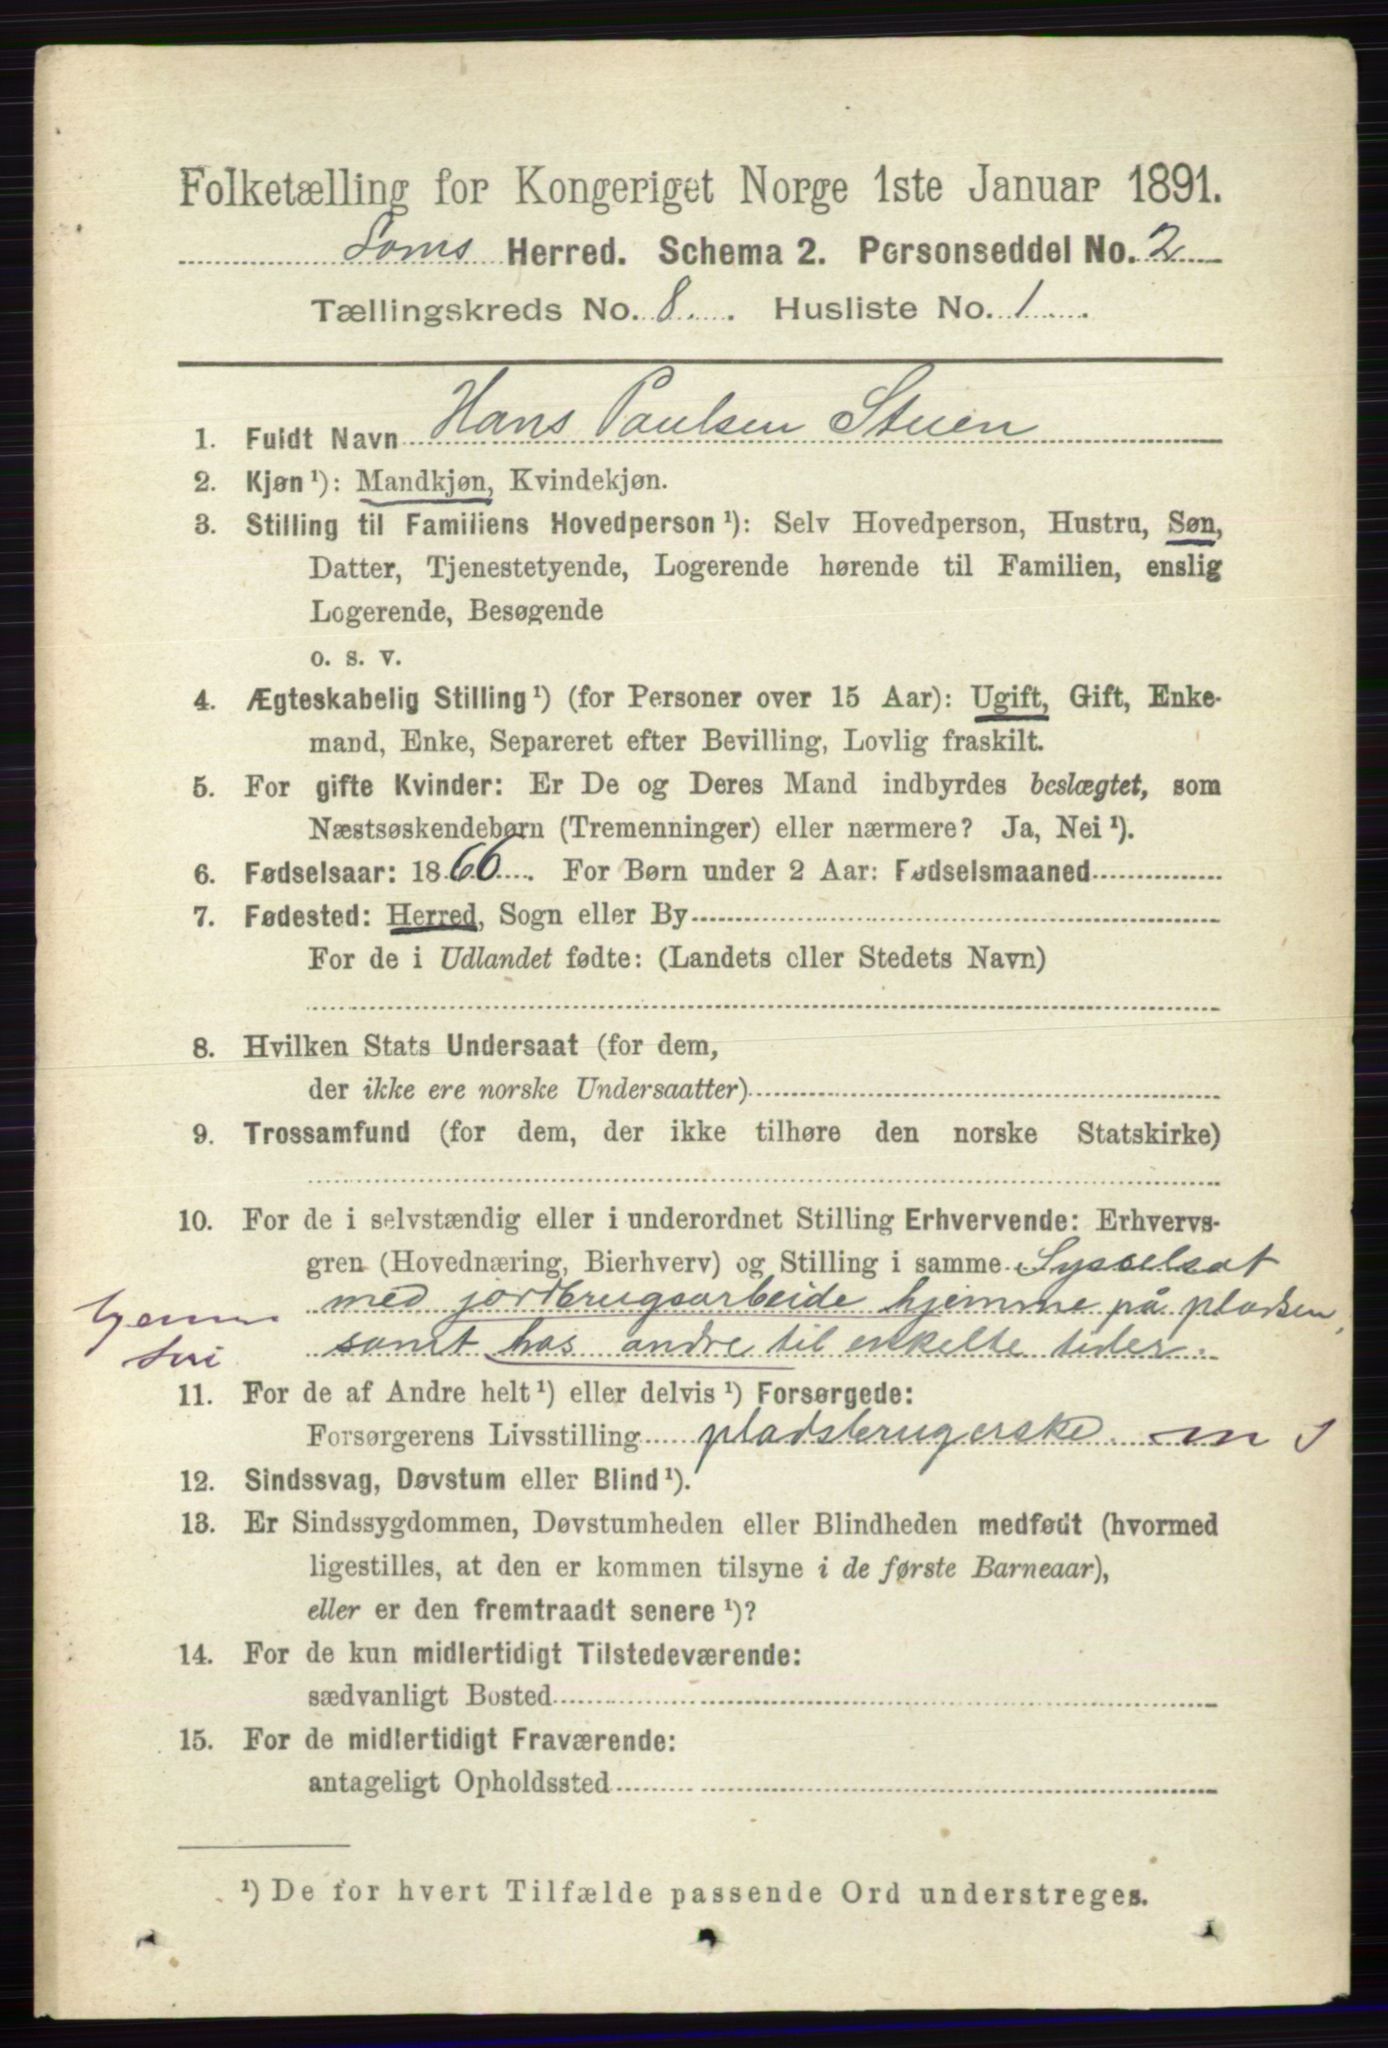 Folketælling for Kongeriget Norge 1ste Januar 1891.
Loms Herred. Schema 2. Personseddel No. 2
Tællingskreds No. 8. Husliste No. 1
1. Fuldt Navn Hans Paulsen Stuen
2. Kjøn ¹): Mandkjøn, Kvindekjøn.
3. Stilling til Familiens Hovedperson ¹): Selv Hovedperson, Hustru, Søn,
Datter, Tjenestetyende, Logerende hørende til Familien, enslig
Logerende, Besøgende
o. s. v.
4. Ægteskabelig Stilling ¹) (for Personer over 15 Aar): Ugift, Gift, Enke-
mand, Enke, Separeret efter Bevilling, Lovlig fraskilt.
5. For gifte Kvinder: Er De og Deres Mand indbyrdes beslægtet, som
Næstsøskendebørn (Tremenninger) eller nærmere? Ja, Nei ¹).
6. Fødselsaar: 1866. For Børn under 2 Aar: Fødselsmaaned
7. Fødested: Herred, Sogn eller By
For de i Udlandet fødte: (Landets eller Stedets Navn)
8. Hvilken Stats Undersaat (for dem,
der ikke ere norske Undersaatter)
9. Trossamfund (for dem, der ikke tilhøre den norske Statskirke)
10. For de i selvstændig eller i underordnet Stilling Erhvervende: Erhvervs-
gren (Hovednæring, Bierhverv) og Stilling i samme Sysselsat
med jordbrugsarbeide hjemme på pladsen,
samt hos andre til enkelte tider.
11. For de af Andre helt ¹) eller delvis ¹) Forsørgede:
Forsørgerens Livsstilling pladsbrugerske
12. Sindssvag, Døvstum eller Blind ¹).
13. Er Sindssygdommen, Døvstumheden eller Blindheden medfødt (hvormed
ligestilles, at den er kommen tilsyne i de første Barneaar),
eller er den fremtraadt senere ¹)?
14. For de kun midlertidigt Tilstedeværende:
sædvanligt Bosted
15. For de midlertidigt Fraværende:
antageligt Opholdssted
¹) De for hvert Tilfælde passende Ord understreges.